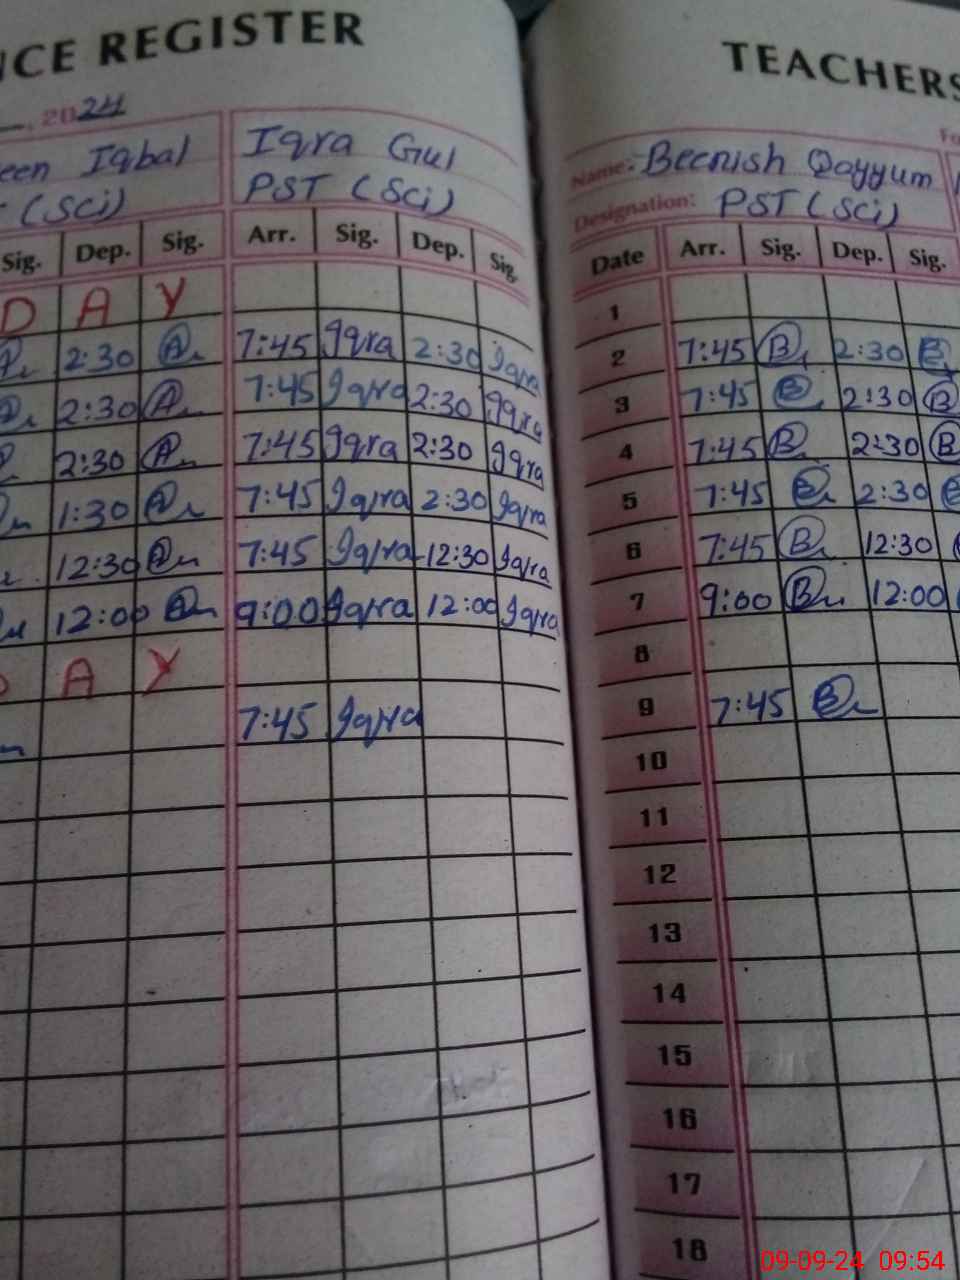 NCE REGISTER
, 2024
een Iqbal Iqra Gul
(Sci) PST (Sci)
Sig. Dep. Sig. Arr. Sig. Dep. Sig.
D A Y
2:30 A 7:45 Iqra 2:30 Iqra
2:30 A 7:45 Iqra 2:30 Iqra
2:30 A 7:45 Iqra 2:30 Iqra
1:30 A 7:45 Iqra 2:30 Iqra
12:30 A 7:45 Iqra 12:30 Iqra
12:00 A 9:00 Iqra 12:00 Iqra
D A Y
7:45 Iqra
TEACHERS
Fo
Name: Beenish Qayyum
Designation: PST (Sci)
Date Arr. Sig. Dep. Sig.
1
2 7:45 B 2:30 B
3 7:45 B 2:30 B
4 7:45 B 2:30 B
5 7:45 B 2:30 B
6 7:45 B 12:30
7 9:00 B 12:00
8
9 7:45 B
10
11
12
13
14
15
16
17
18
09-09-24 09:54